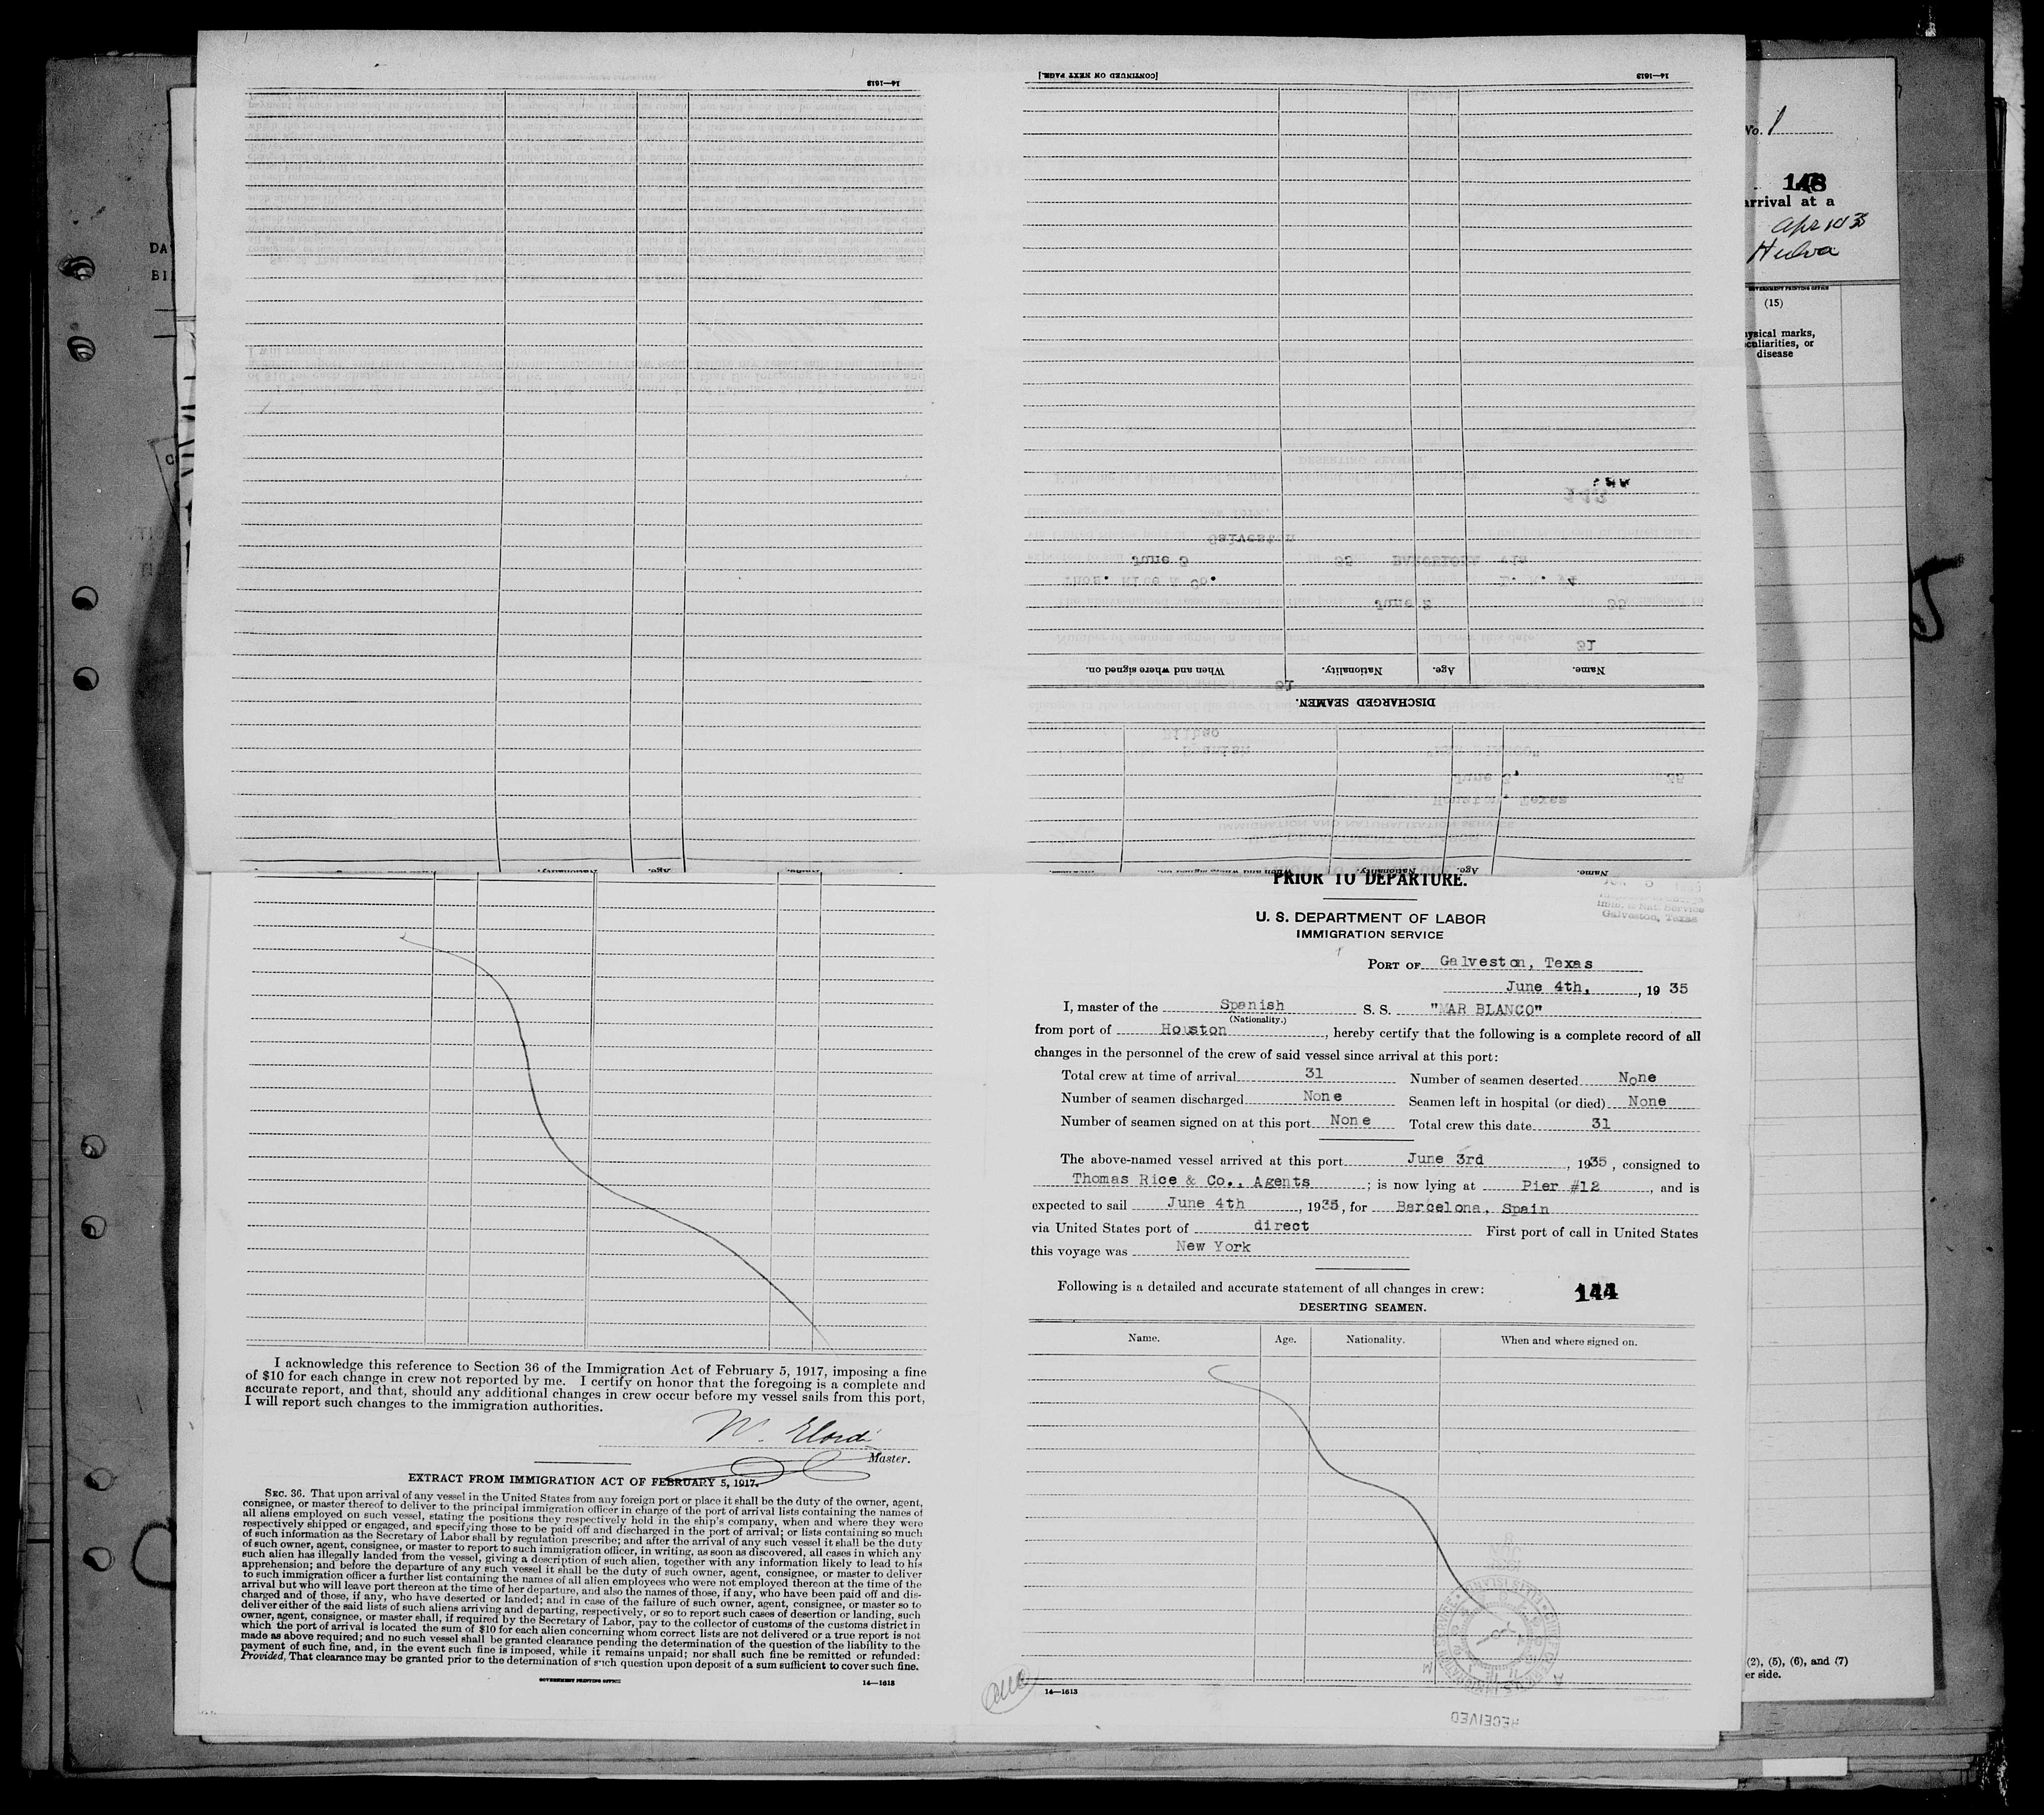 14—1613
[CONTINUED ON NEXT PAGE.]
14—1613
Name.
Age.
Nationality.
When and where signed on.
DISCHARGED SEAMEN.
Name.
Age.
Nationality.
No. 1
148
arrival at a
(15)
disease
(2), (5), (6), and (7)
er side.
PRIOR TO DEPARTURE.
Imm. & Nat. Service
Galveston, Texas
U. S. DEPARTMENT OF LABOR
IMMIGRATION SERVICE
PORT OF Galveston, Texas
June 4th, , 19 35
I, master of the Spanish S. S. "MAR BLANCO"
(Nationality.)
from port of Houston , hereby certify that the following is a complete record of all
changes in the personnel of the crew of said vessel since arrival at this port:
Total crew at time of arrival 31 Number of seamen deserted None
Number of seamen discharged None Seamen left in hospital (or died) None
Number of seamen signed on at this port None Total crew this date 31
The above-named vessel arrived at this port June 3rd , 1935 , consigned to
Thomas Rice & Co., Agents ; is now lying at Pier #12 , and is
expected to sail June 4th , 1935 , for Barcelona, Spain
via United States port of direct First port of call in United States
this voyage was New York
Following is a detailed and accurate statement of all changes in crew: 144
DESERTING SEAMEN.
Name. Age. Nationality. When and where signed on.
14—1613
RECEIVED
I acknowledge this reference to Section 36 of the Immigration Act of February 5, 1917, imposing a fine
of $10 for each change in crew not reported by me. I certify on honor that the foregoing is a complete and
accurate report, and that, should any additional changes in crew occur before my vessel sails from this port,
I will report such changes to the immigration authorities.
Master.
EXTRACT FROM IMMIGRATION ACT OF FEBRUARY 5, 1917.
SEC. 36. That upon arrival of any vessel in the United States from any foreign port or place it shall be the duty of the owner, agent,
consignee, or master thereof to deliver to the principal immigration officer in charge of the port of arrival lists containing the names of
all aliens employed on such vessel, stating the positions they respectively hold in the ship's company, when and where they were
respectively shipped or engaged, and specifying those to be paid off and discharged in the port of arrival; or lists containing so much
of such information as the Secretary of Labor shall by regulation prescribe; and after the arrival of any such vessel it shall be the duty
of such owner, agent, consignee, or master to report to such immigration officer, in writing, as soon as discovered, all cases in which any
such alien has illegally landed from the vessel, giving a description of such alien, together with any information likely to lead to his
apprehension; and before the departure of any such vessel it shall be the duty of such owner, agent, consignee, or master to deliver
to such immigration officer a further list containing the names of all alien employees who were not employed thereon at the time of the
arrival but who will leave port thereon at the time of her departure, and also the names of those, if any, who have been paid off and dis-
charged and of those, if any, who have deserted or landed; and in case of the failure of such owner, agent, consignee, or master so to
deliver either of the said lists of such aliens arriving and departing, respectively, or so to report such cases of desertion or landing, such
owner, agent, consignee, or master shall, if required by the Secretary of Labor, pay to the collector of customs of the customs district in
which the port of arrival is located the sum of $10 for each alien concerning whom correct lists are not delivered or a true report is not
made as above required; and no such vessel shall be granted clearance pending the determination of the question of the liability to the
payment of such fine, and, in the event such fine is imposed, while it remains unpaid; nor shall such fine be remitted or refunded:
Provided, That clearance may be granted prior to the determination of such question upon deposit of a sum sufficient to cover such fine.
GOVERNMENT PRINTING OFFICE
14—1613